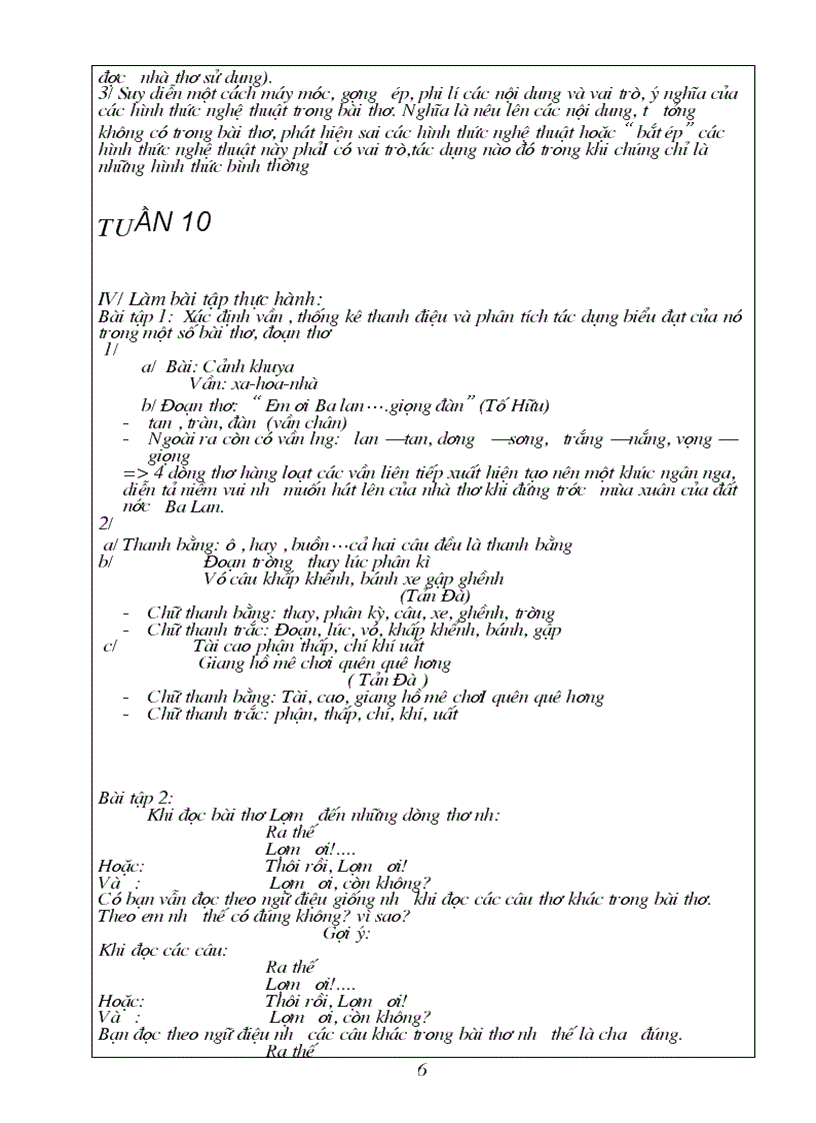 đợc nhà thơ sử dụng).
3/ Suy diễn một cách máy móc, gợng ép, phi lí các nội dung và vai trò, ý nghĩa của
các hình thức nghệ thuật trong bài thơ. Nghĩa là nêu lên các nội dung, t tởng
không có trong bài thơ, phát hiện sai các hình thức nghệ thuật hoặc “ bắt ép” các
hình thức nghệ thuật này phảI có vai trò,tác dụng nào đó trong khi chúng chỉ là
những hình thức bình thờng
TUẦN 10
IV/ Làm bài tập thực hành:
Bài tập 1: Xác định vần , thống kê thanh điệu và phân tích tác dụng biểu đạt của nó
trong một số bài thơ, đoạn thơ
1/
a/ Bài: Cảnh khuya
Vần: xa-hoa-nhà
b/ Đoạn thơ: “ Em ơi Ba lan….giọng đàn” (Tố Hữu)
- tan , tràn, đàn (vần chân)
- Ngoài ra còn có vần lng: lan —tan, dơng —sơng, trắng —nắng, vọng —
giọng
=> 4 dòng thơ hàng loạt các vần liên tiếp xuất hiện tạo nên một khúc ngân nga,
diễn tả niềm vui nh muốn hát lên của nhà thơ khi đứng trớc mùa xuân của đất
nớc Ba Lan.
2/
a/ Thanh bằng: ô , hay , buồn…cả hai câu đều là thanh bằng
b/ Đoạn trờng thay lúc phân kì
Vó câu khấp khểnh, bánh xe gập ghềnh
(Tản Đà)
- Chữ thanh bằng: thay, phân kỳ, câu, xe, ghềnh, trờng
- Chữ thanh trắc: Đoạn, lúc, vó, khấp khểnh, bánh, gập
c/ Tài cao phận thấp, chí khí uất
Giang hồ mê chơi quên quê hơng
( Tản Đà )
- Chữ thanh bằng: Tài, cao, giang hồ mê chơI quên quê hơng
- Chữ thanh trắc: phận, thấp, chí, khí, uất
Bài tập 2:
Khi đọc bài thơ Lợm đến những dòng thơ nh:
Ra thế
Lợm ơi!....
Hoặc: Thôi rồi, Lợm ơi!
Và : Lợm ơi, còn không?
Có bạn vẫn đọc theo ngữ điệu giống nh khi đọc các câu thơ khác trong bài thơ.
Theo em nh thế có đúng không? vì sao?
Gợi ý:
Khi đọc các câu:
Ra thế
Lợm ơi!....
Hoặc: Thôi rồi, Lợm ơi!
Và : Lợm ơi, còn không?
Bạn đọc theo ngữ điệu nh các câu khác trong bài thơ nh thế là cha đúng.
Ra thế
6